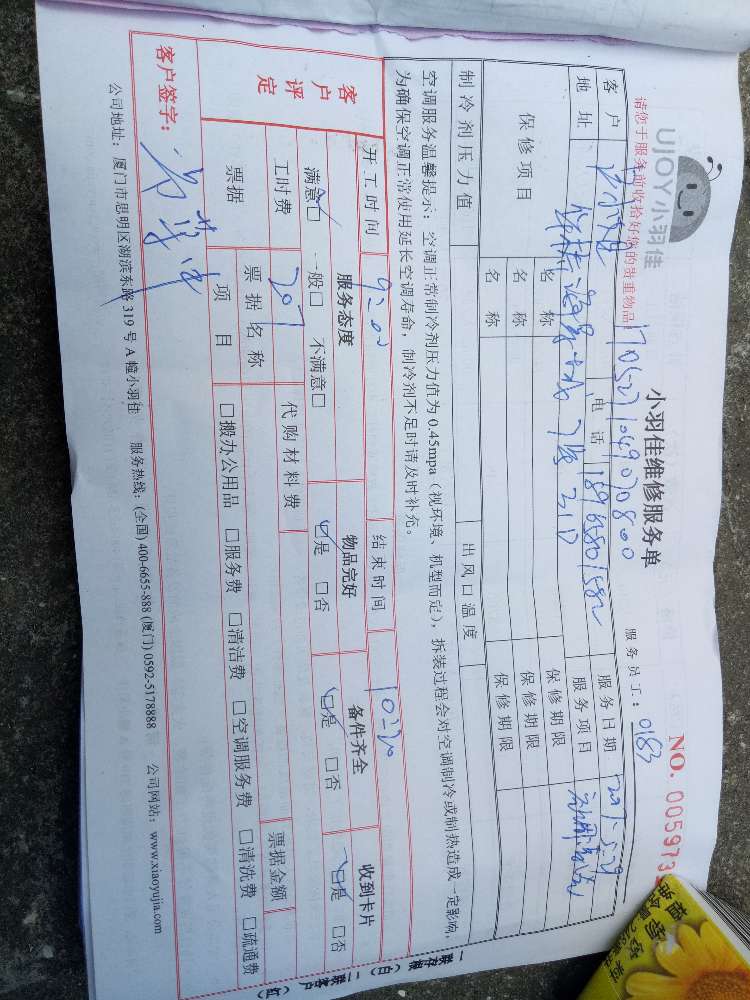 UJOY小羽佳
小羽佳维修服务单
NO. 005973
请您于服务前收拾好您的贵重物品
1705271049070800
服务员工: 0183
客户
电话
服务日期
地址
7 2 10
服务项目
保修项目
名称
保修期限
名称
保修期限
名称
保修期限
制冷剂压力值
出风口温度
空调服务温馨提示: 空调正常制冷剂压力值为 0.45mpa (视环境、机型而定), 拆装过程会对空调制冷或制热造成一定影响,
为确保空调正常使用延长空调寿命, 制冷剂不足时请及时补充。
开工时间
9:00
结束时间
10:20
客户评定
服务态度
物品完好
备件齐全
收到卡片
满意□ 一般□ 不满意□
□是 □否
□是 □否
□是 □否
工时费
207
代购材料费
票据金额
票据
票据名称
项目
□搬办公用品 □服务费 □清洁费 □空调服务费 □清洗费 □疏通费
客户签字:
公司地址: 厦门市思明区湖滨东路 319 号 A 幢小羽佳 服务热线: (全国) 400-6655-888 (厦门) 0592-5178888 公司网站: www.xiaoyujia.com
一联存根 (白) 二联客户 (红)